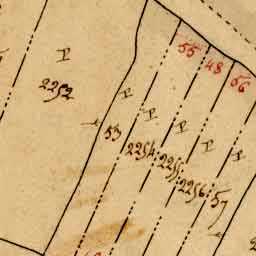 55
48
56
2252
53
2254
2255
2256
57